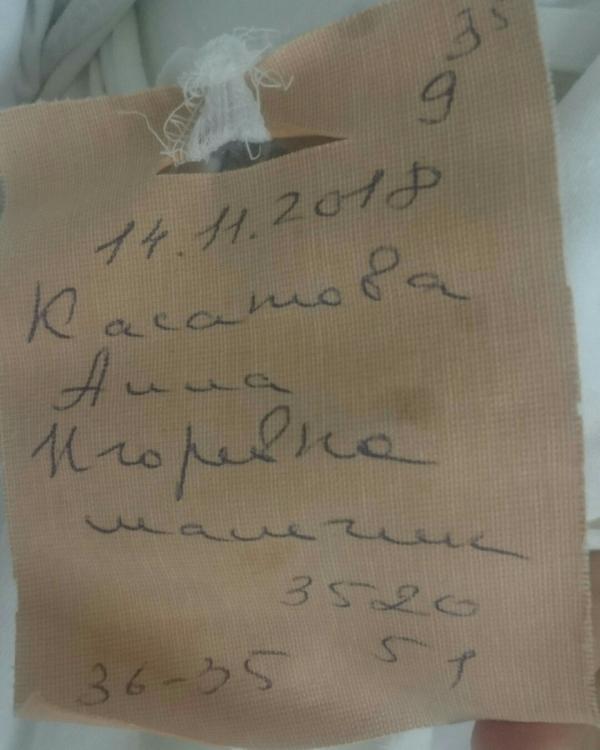 35
9
14.11.2018
Касатова
Анна
Игоревна
мальчик
3520
51
36-35